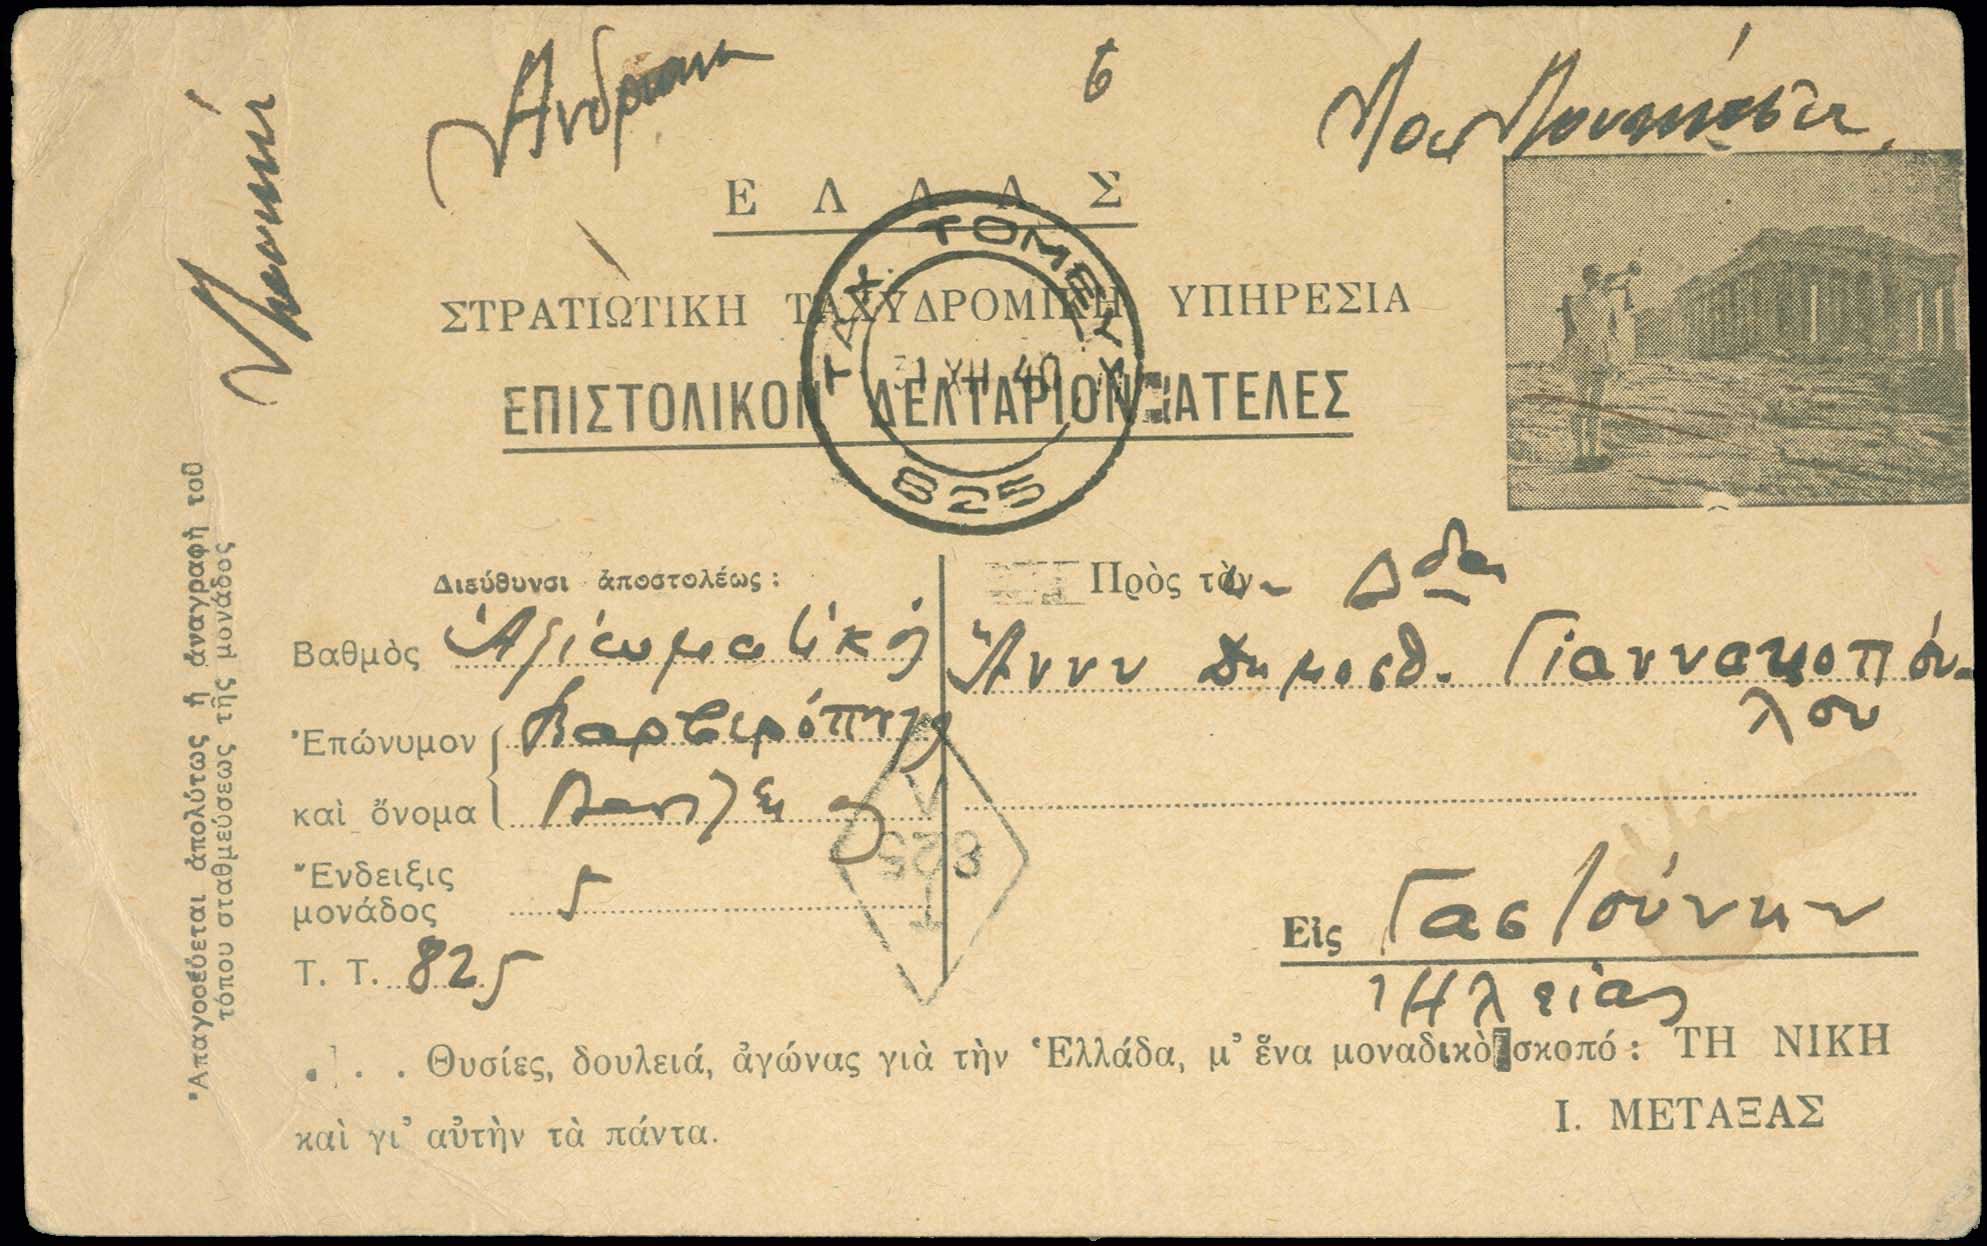 Ε Λ Λ Α Σ
ΣΤΡΑΤΙΩΤΙΚΗ ΤΑΧΥΔΡΟΜΙΚΗ ΥΠΗΡΕΣΙΑ
ΕΠΙΣΤΟΛΙΚΟΝ ΔΕΛΤΑΡΙΟΝ ΑΤΕΛΕΣ
ΤΑΧ. ΤΟΜΕΥΣ
31 XII 40
825
Διεύθυνσι ἀποστολέως :
Βαθμὸς Ἀξιωματικός
Ἐπώνυμον
καὶ ὄνομα
Ἔνδειξις
μονάδος 5
Τ. Τ. 825
Πρὸς τὴν Δδα
Ἄνναν Δημοσθ. Γιαννακοπού-
λου
Εἰς Γαστούνην
Ἠλείας
V
825
T
. . . Θυσίες, δουλειά, ἀγώνας γιὰ τὴν Ἑλλάδα, μ' ἕνα μοναδικὸ σκοπό : ΤΗ ΝΙΚΗ
καὶ γι' αὐτὴν τὰ πάντα.
Ι. ΜΕΤΑΞΑΣ
Ἀπαγορεύεται ἀπολύτως ἡ ἀναγραφὴ τοῦ
τόπου σταθμεύσεως τῆς μονάδος